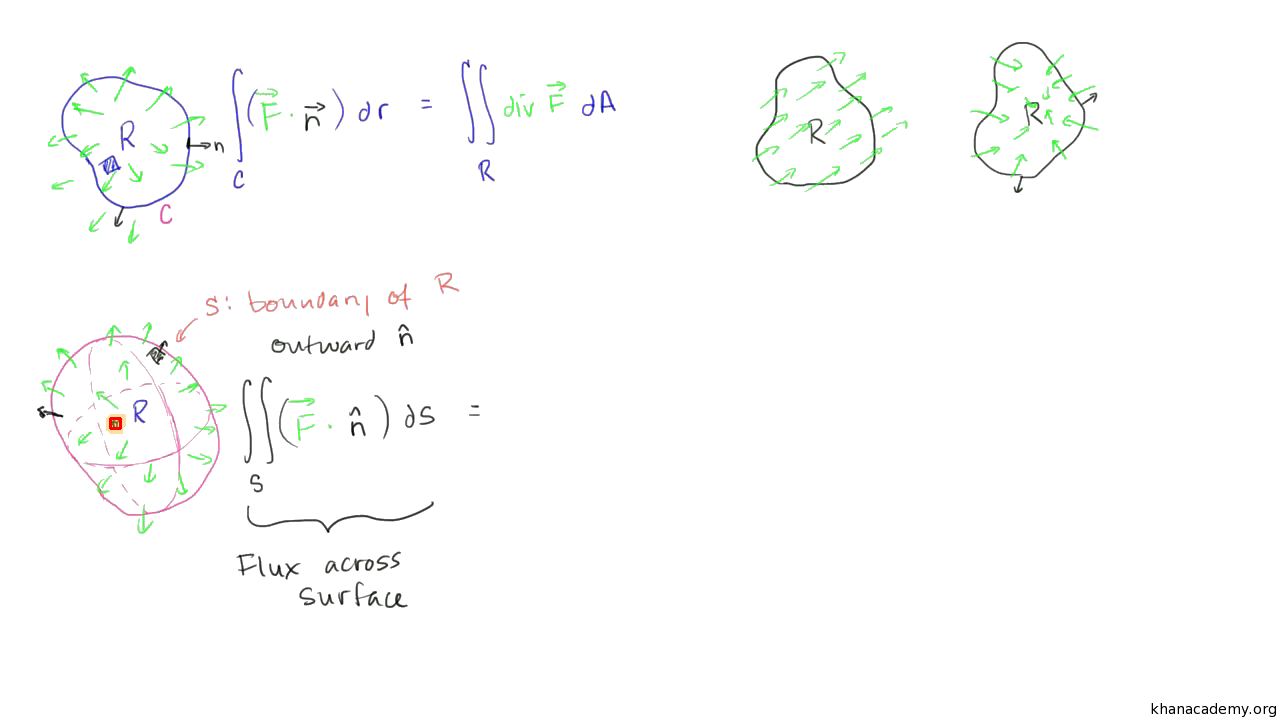 R
n
C
∫ (F⃗ · n⃗) dr = ∬ div F⃗ dA
C
R
R
R
S: boundary of R
outward n̂
R
∬ (F⃗ · n̂) dS =
S
Flux across
surface
khanacademy.org